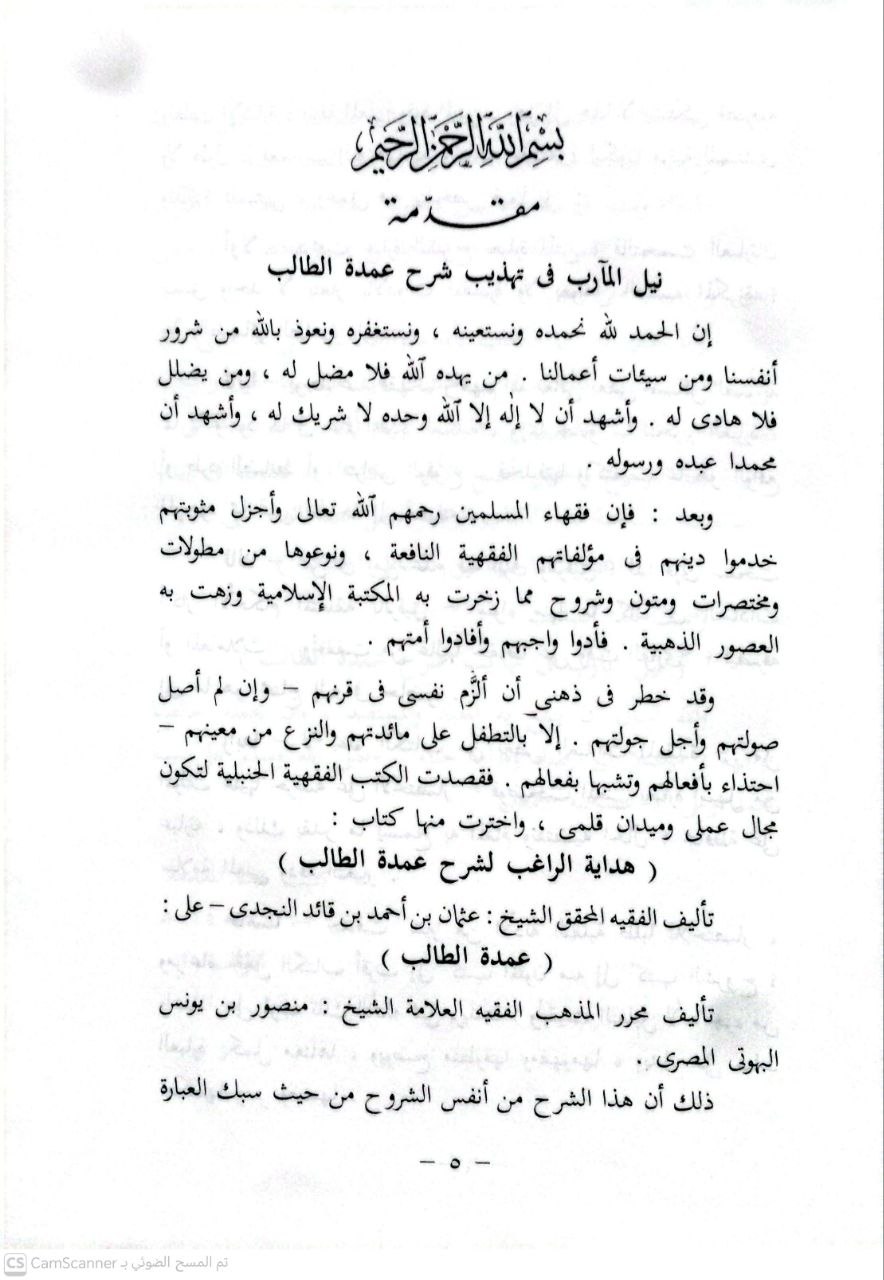 بسم الله الرحمن الرحيم
مقدمة
نيل المآرب فى تهذيب شرح عمدة الطالب
إن الحمد لله نحمده ونستعينه ، ونستغفره ونعوذ بالله من شرور
أنفسنا ومن سيئات أعمالنا . من يهده الله فلا مضل له ، ومن يضلل
فلا هادى له . وأشهد أن لا إله إلا الله وحده لا شريك له ، وأشهد أن
محمدا عبده ورسوله .
وبعد : فإن فقهاء المسلمين رحمهم الله تعالى وأجزل مثوبتهم
خدموا دينهم فى مؤلفاتهم الفقهية النافعة ، ونوعوها من مطولات
ومختصرات ومتون وشروح مما زخرت به المكتبة الإسلامية وزهت به
العصور الذهبية . فأدوا واجبهم وأفادوا أمتهم .
وقد خطر فى ذهنى أن ألزَّم نفسى فى قرنهم – وإن لم أصل
صولتهم وأجل جولتهم . إلا بالتطفل على مائدتهم والنزع من معينهم –
احتذاء بأفعالهم وتشبها بفعالهم . فقصدت الكتب الفقهية الحنبلية لتكون
مجال عملى وميدان قلمى ، واخترت منها كتاب :
( هداية الراغب لشرح عمدة الطالب )
تأليف الفقيه المحقق الشيخ : عثمان بن أحمد بن قائد النجدى – على :
( عمدة الطالب )
تأليف محرر المذهب الفقيه العلامة الشيخ : منصور بن يونس
البهوتى المصرى .
ذلك أن هذا الشرح من أنفس الشروح من حيث سبك العبارة
– ٥ –
CS CamScanner تم المسح الضوئي بـ